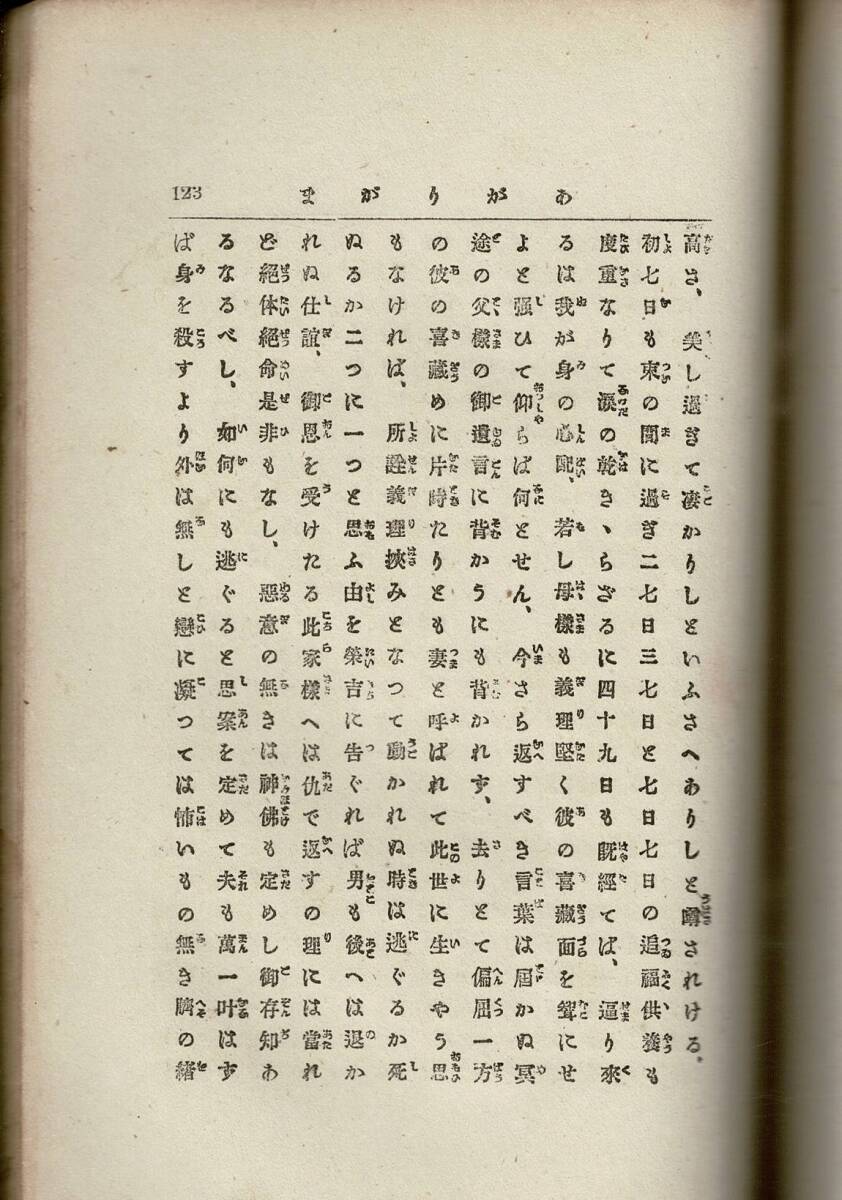 まがりがあ
123
高さ、美し過ぎて凄かりしといふさへありしと噂されける。
初七日も束の間に過ぎ二七日三七日と七日七日の追福供養も
度重なりて涙の乾き、らざるに四十九日も既經てば、逼り來
るは我が身の心配、若し母樣も義理堅く彼の喜藏面を聟にせ
よと强ひて仰らば何とせん、今さら返すべき言葉は屆かぬ冥
途の父樣の御遺言に背かうにも背かれず、去りとて偏屈一方
の彼の喜藏めに片時たりとも妻と呼ばれて此世に生きやう思
もなければ、所詮義理挾みとなつて動かれぬ時は逃ぐるか死
ぬるか二つに一つと思ふ由を榮吉に告ぐれば男も後へは退か
れぬ仕誼、御恩を受けたる此家樣へは仇で返すの理には當れ
ど絕体絕命是非もなし、惡意の無きは神佛も定めし御存知あ
るなるべし、如何にも逃ぐると思案を定めて夫も萬一叶はず
ば身を殺すより外は無しと戀に凝つては怖いもの無き臍の緖